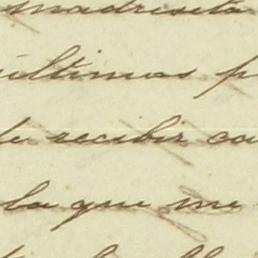 madrecita
últimos p
de recibir ca
la que me